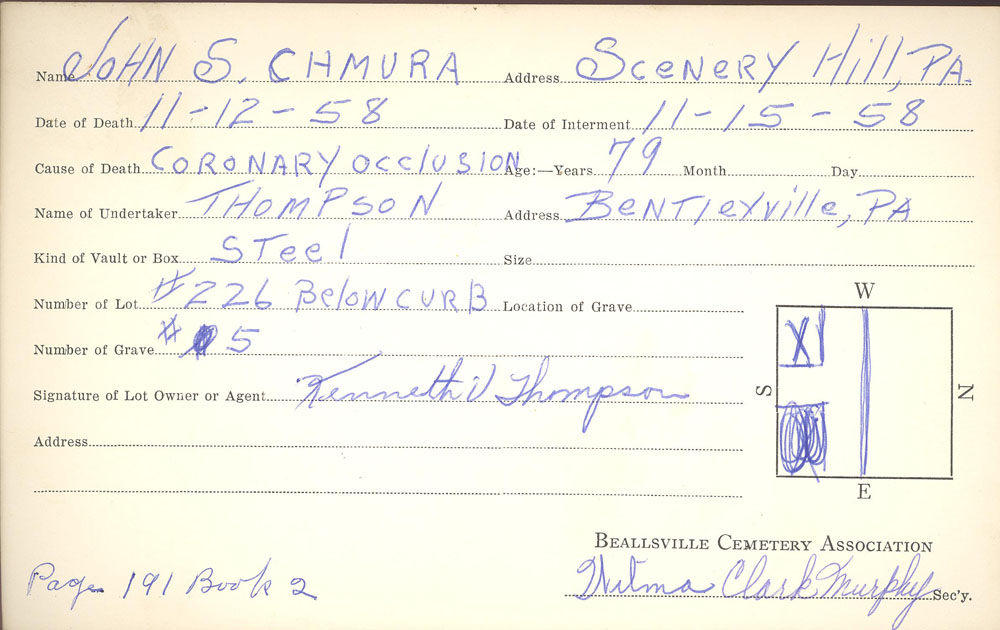 Name JOHN S. CHMURA Address SCENERY Hill, PA.
Date of Death 11-12-58 Date of Interment 11-15-58
Cause of Death CORONARY OCClUSION Age:—Years 79 Month Day
Name of Undertaker THOMPSON Address BeNTleyville, PA
Kind of Vault or Box STeel Size
Number of Lot #226 BelOW CURB Location of Grave
W
Number of Grave # 5
X
S
N
Signature of Lot Owner or Agent Kenneth V Thompson
Address
E
BEALLSVILLE CEMETERY ASSOCIATION
Page 191 Book 2
Wilma Clark Murphy Sec'y.